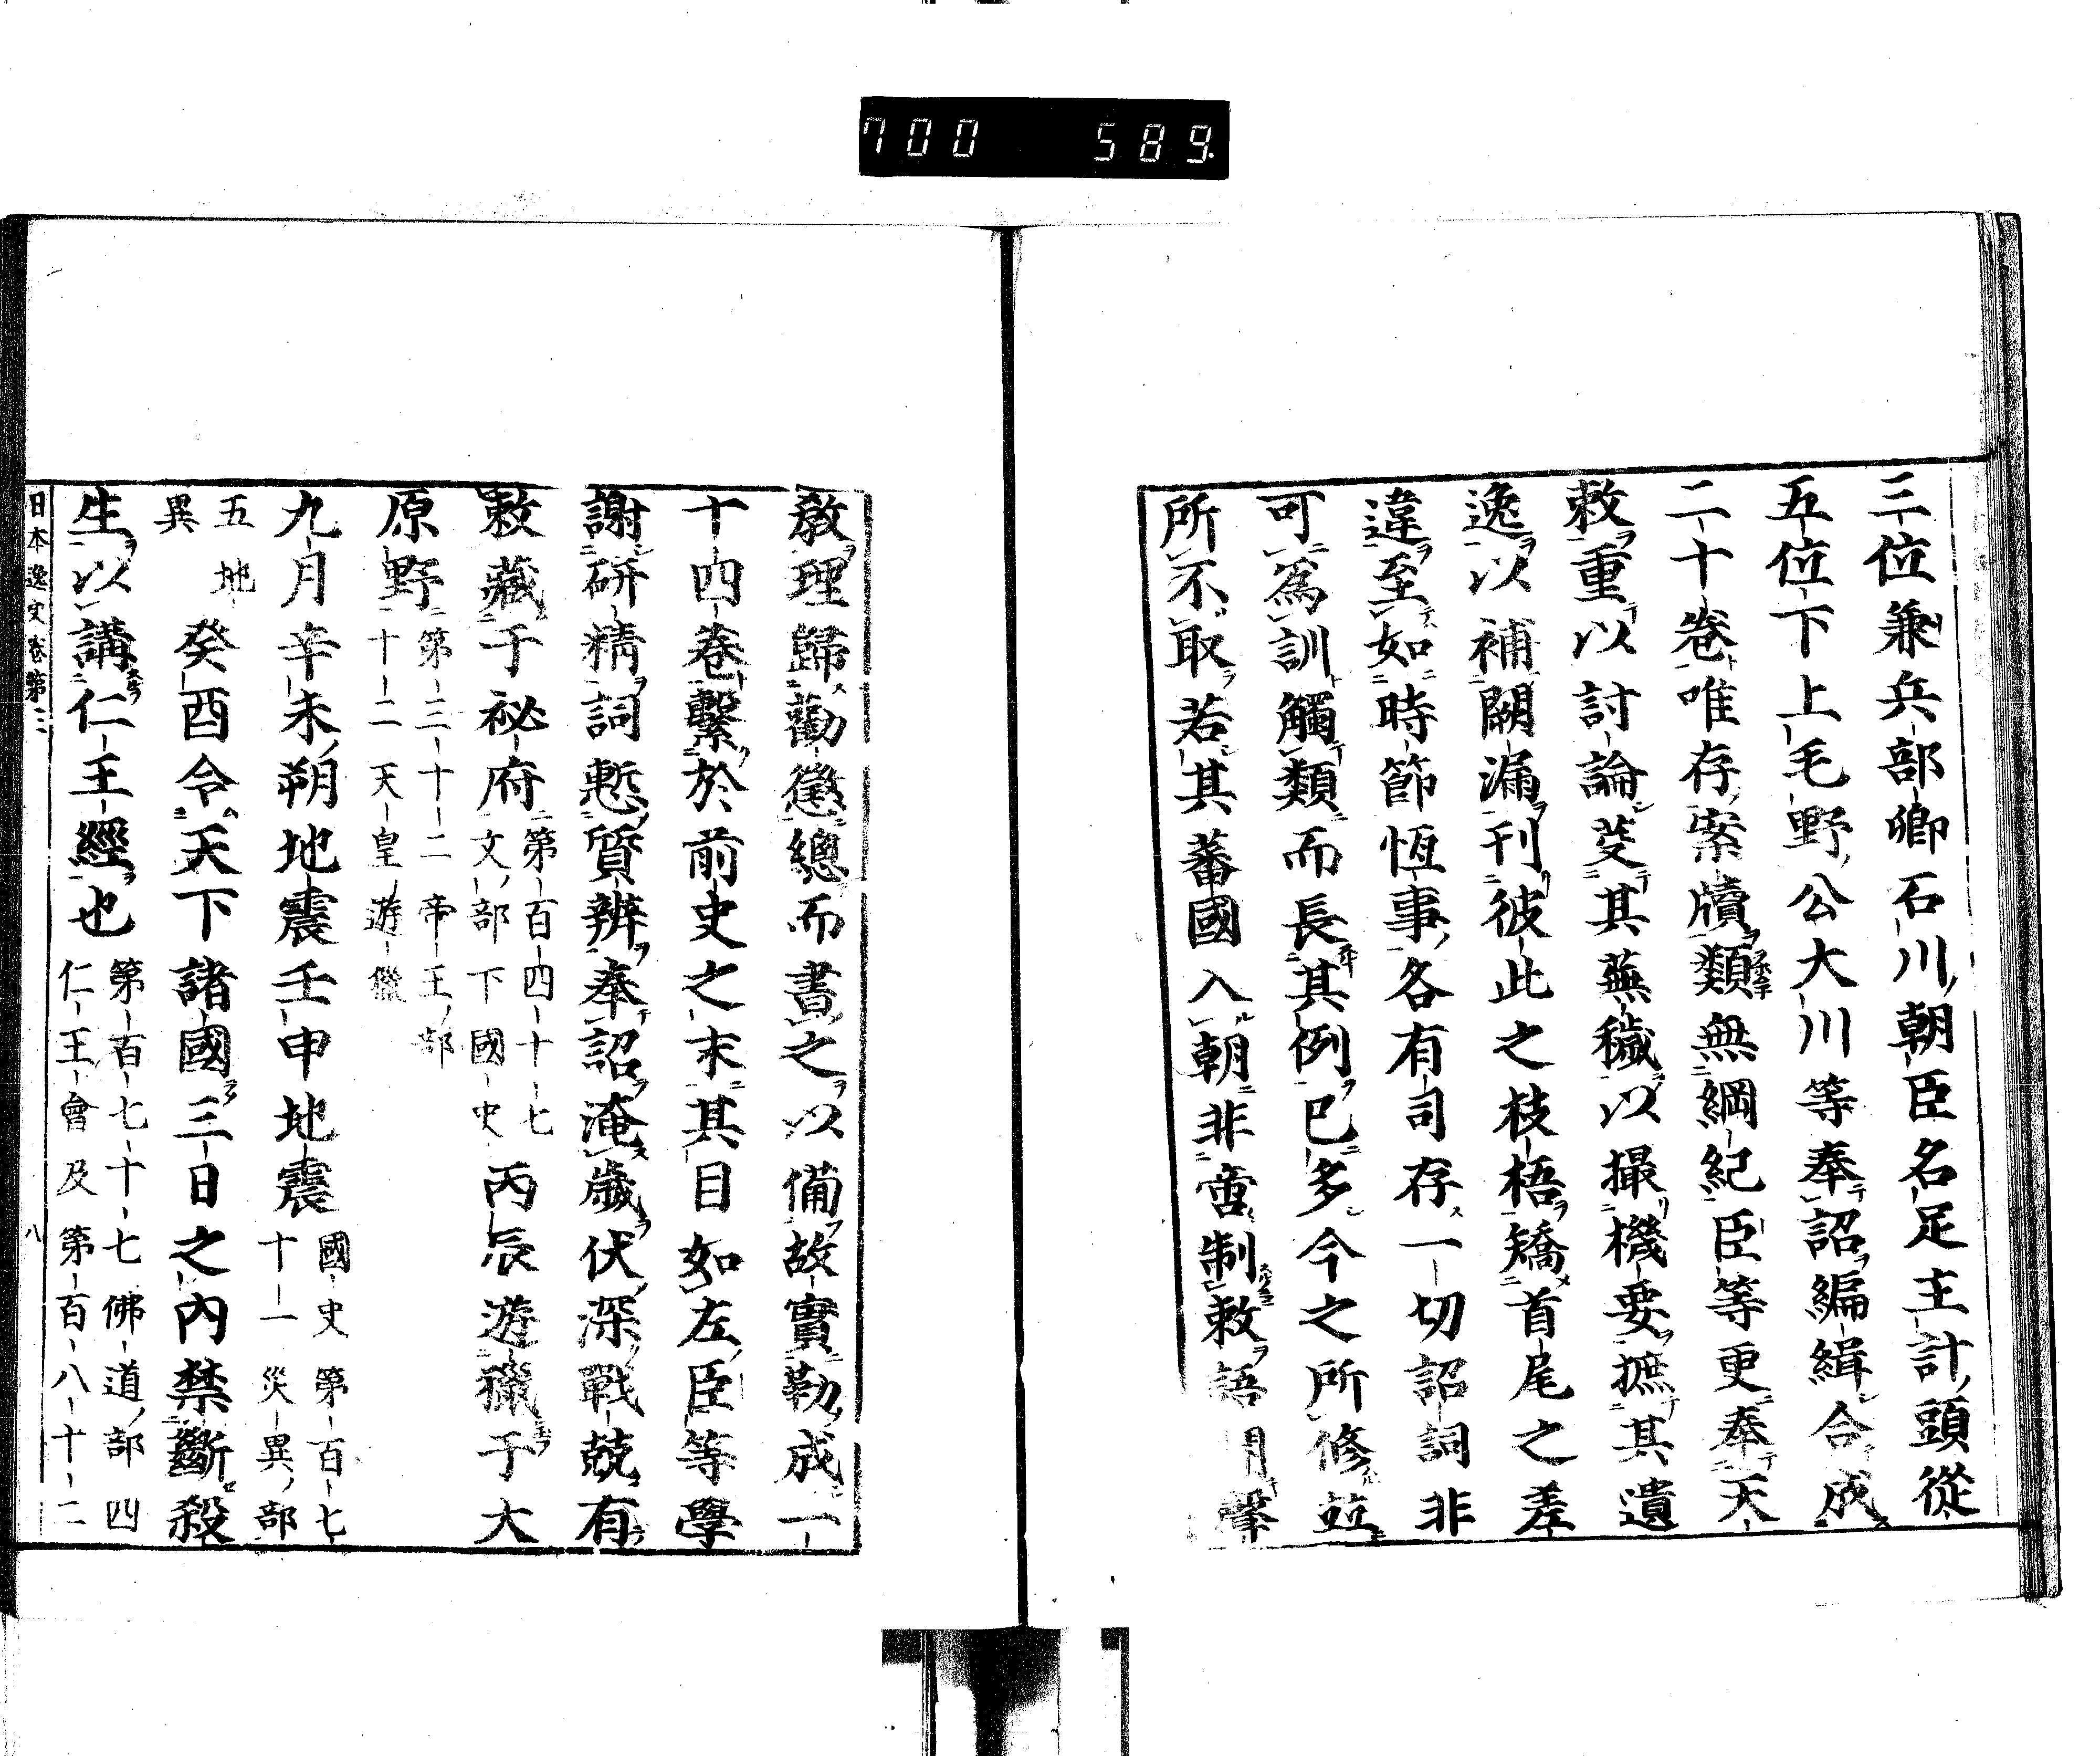 700 589
三位兼兵部卿石川朝臣名足主計頭從
五位下上毛野公大川等奉詔編緝合成
二十卷唯存案牘類無綱紀臣等更奉天
敕重以討論芟其蕪穢以撮機要摭其遺
逸以補闕漏刊彼此之枝梧矯首尾之差
違至如時節恆事各有司存一切詔詞非
可為訓觸類而長其例已多今之所修並
所不取若其蕃國入朝非常制敕語關聲
教理歸勸懲總而書之以備故實勒成一
十四卷繫於前史之末其目如左臣等學
謝研精詞慙質辨奉詔淹歲伏深戰兢有
敕藏于祕府第百四十七
文部下國史丙辰遊獵于大
原野第三十二帝王部
十二天皇遊獵
九月辛未朔地震壬申地震國史第百七
十一災異部
五地
異癸酉令天下諸國三日之內禁斷殺
生以講仁王經也第百七十七佛道部四
仁王會及第百八十二
日本逸史卷第三 八